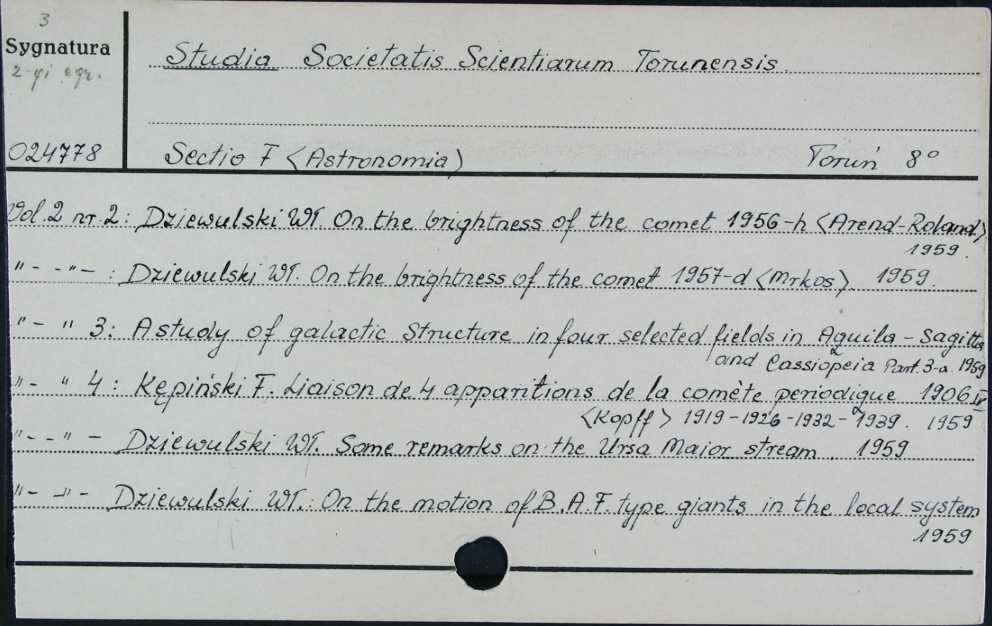 3
Sygnatura
2-gi egz.
Studia Societatis Scientiarum Torunensis.
024778
Sectio F <Astronomia)
Toruń 8°
Vol. 2 nr. 2: Dziewulski Wł. On the brightness of the comet 1956-h <Arend-Roland>
1959.
"- -"- : Dziewulski Wł. On the brightness of the comet 1957-d <Mrkos> 1959.
"- " 3: A study of galactic Structure in four selected fields in Aquila - Sagitta
and Cassiopeia Part. 3-a 1959
"- " 4: Kępiński F. Liaison de 4 apparitions de la comète periodique 1906 IV
<Kopff> 1919-1926-1932-1939. 1959
"- -"- Dziewulski Wł. Some remarks on the Ursa Maior stream. 1959
"- -"- Dziewulski Wł.: On the motion of B.A.F. type giants in the local system
1959